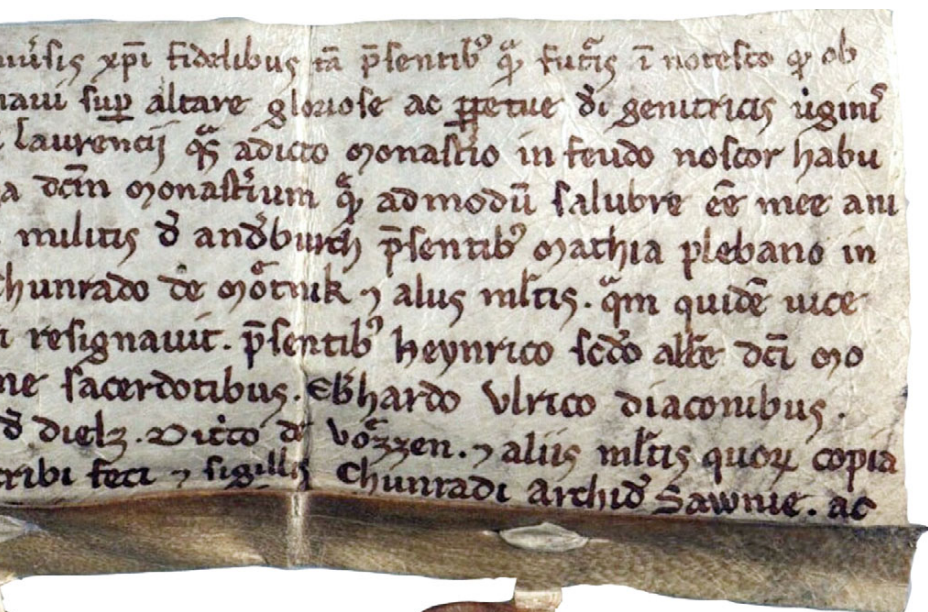 uniũsis xp̄i fidelibus tā p̄sentib᷒ q̄ᵃ futᵃis ī notesco ꝙ ob
naui suꝑ altare gloriose ac ꝑpetue di genitricis uͥginis
laurencij qᵃs adicto monastio in feudo noscor habu
a dc̄m monastͥium qᵃ admodū salubre ee᷒̄ mee ani
militis đ andburch p̄sentib᷒ mathia plebano in
chunrado de moͣtnik ⁊ aliis ml̄tis. qᵃm quidē uice
resignauit. p̄sentib᷒ heynrico scd̄o abb̄e dc̄i mo
ne sacerdotibus. Eb̄hardo Vlrico diaconibus.
đ dielz. Ditͦco de voͣzzen. ⁊ aliis ml̄tis quoꝝ copia
cribi feci ⁊ sigillis Chunradi Archid̄ Sawnie. ac